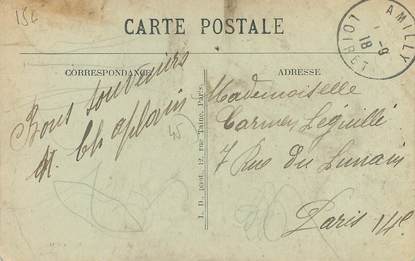 154
CARTE POSTALE
AMILLY
LOIRET
9
18
CORRESPONDANCE
ADRESSE
Bons souvenirs
Chaplain
45
I. D. post. 12, rue Taine, Paris.
Mademoiselle
Carmen Léguillé
7 Rue du Lunain
Paris 14e